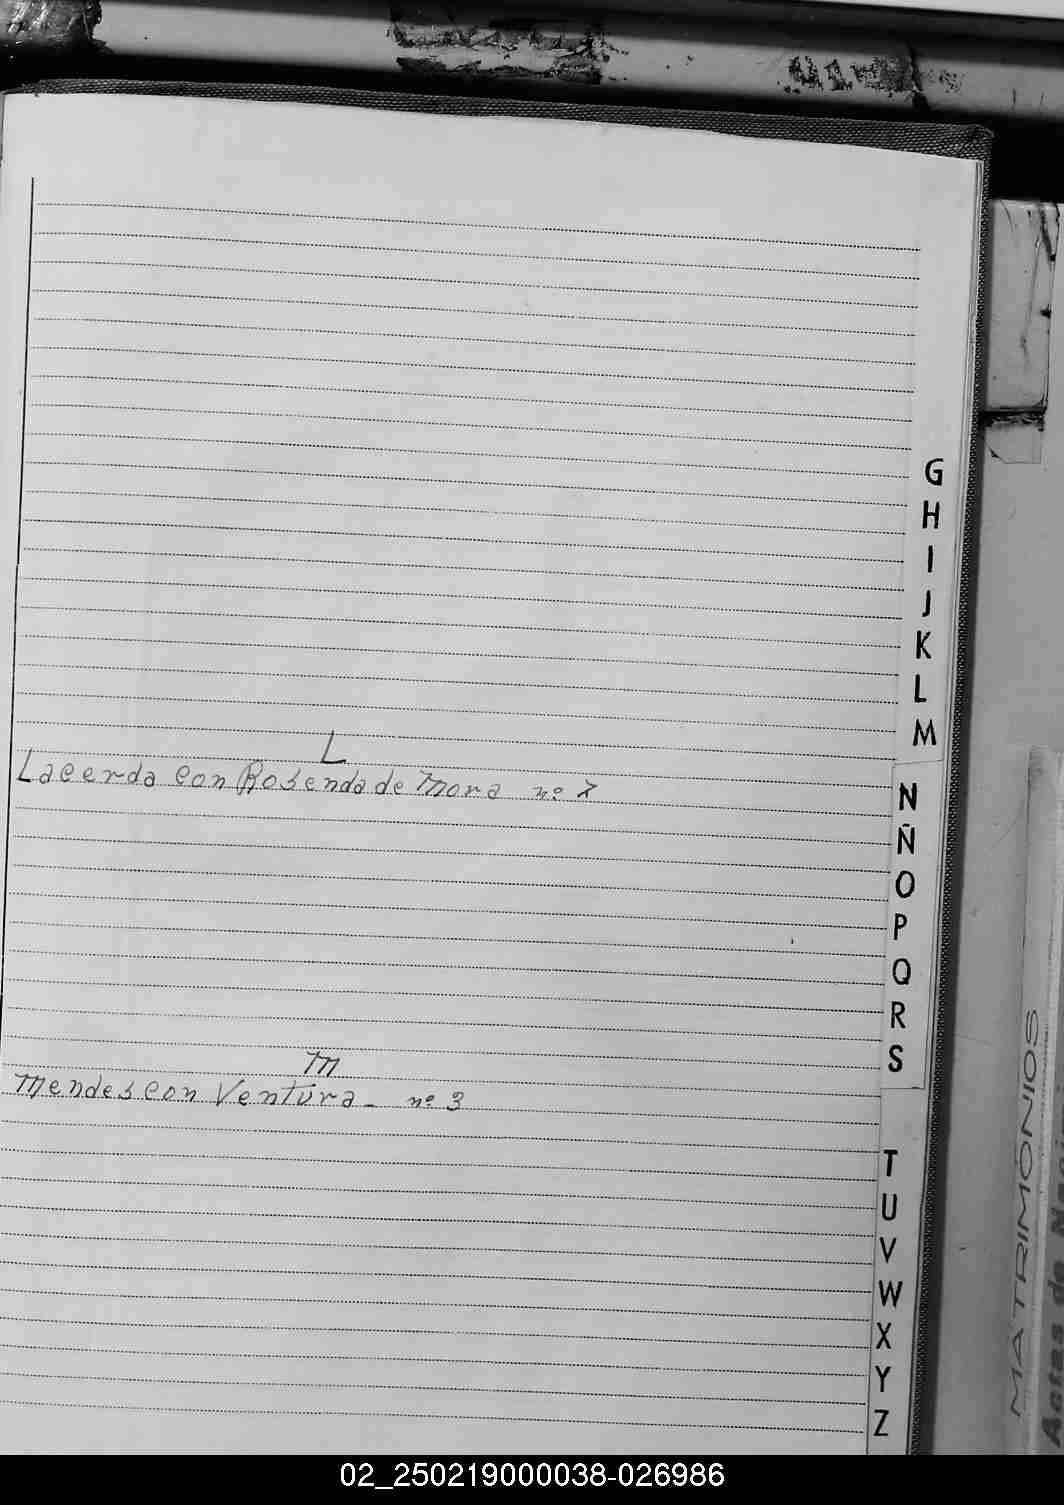 G
H
I
J
K
L
M
L
Lacerda con Rosenda de Mora nº 7
N
Ñ
O
P
Q
R
S
M
Mendes con Ventura - nº 3
T
U
V
W
X
Y
Z
MATRIMONIOS
Actas de
02_250219000038-026986